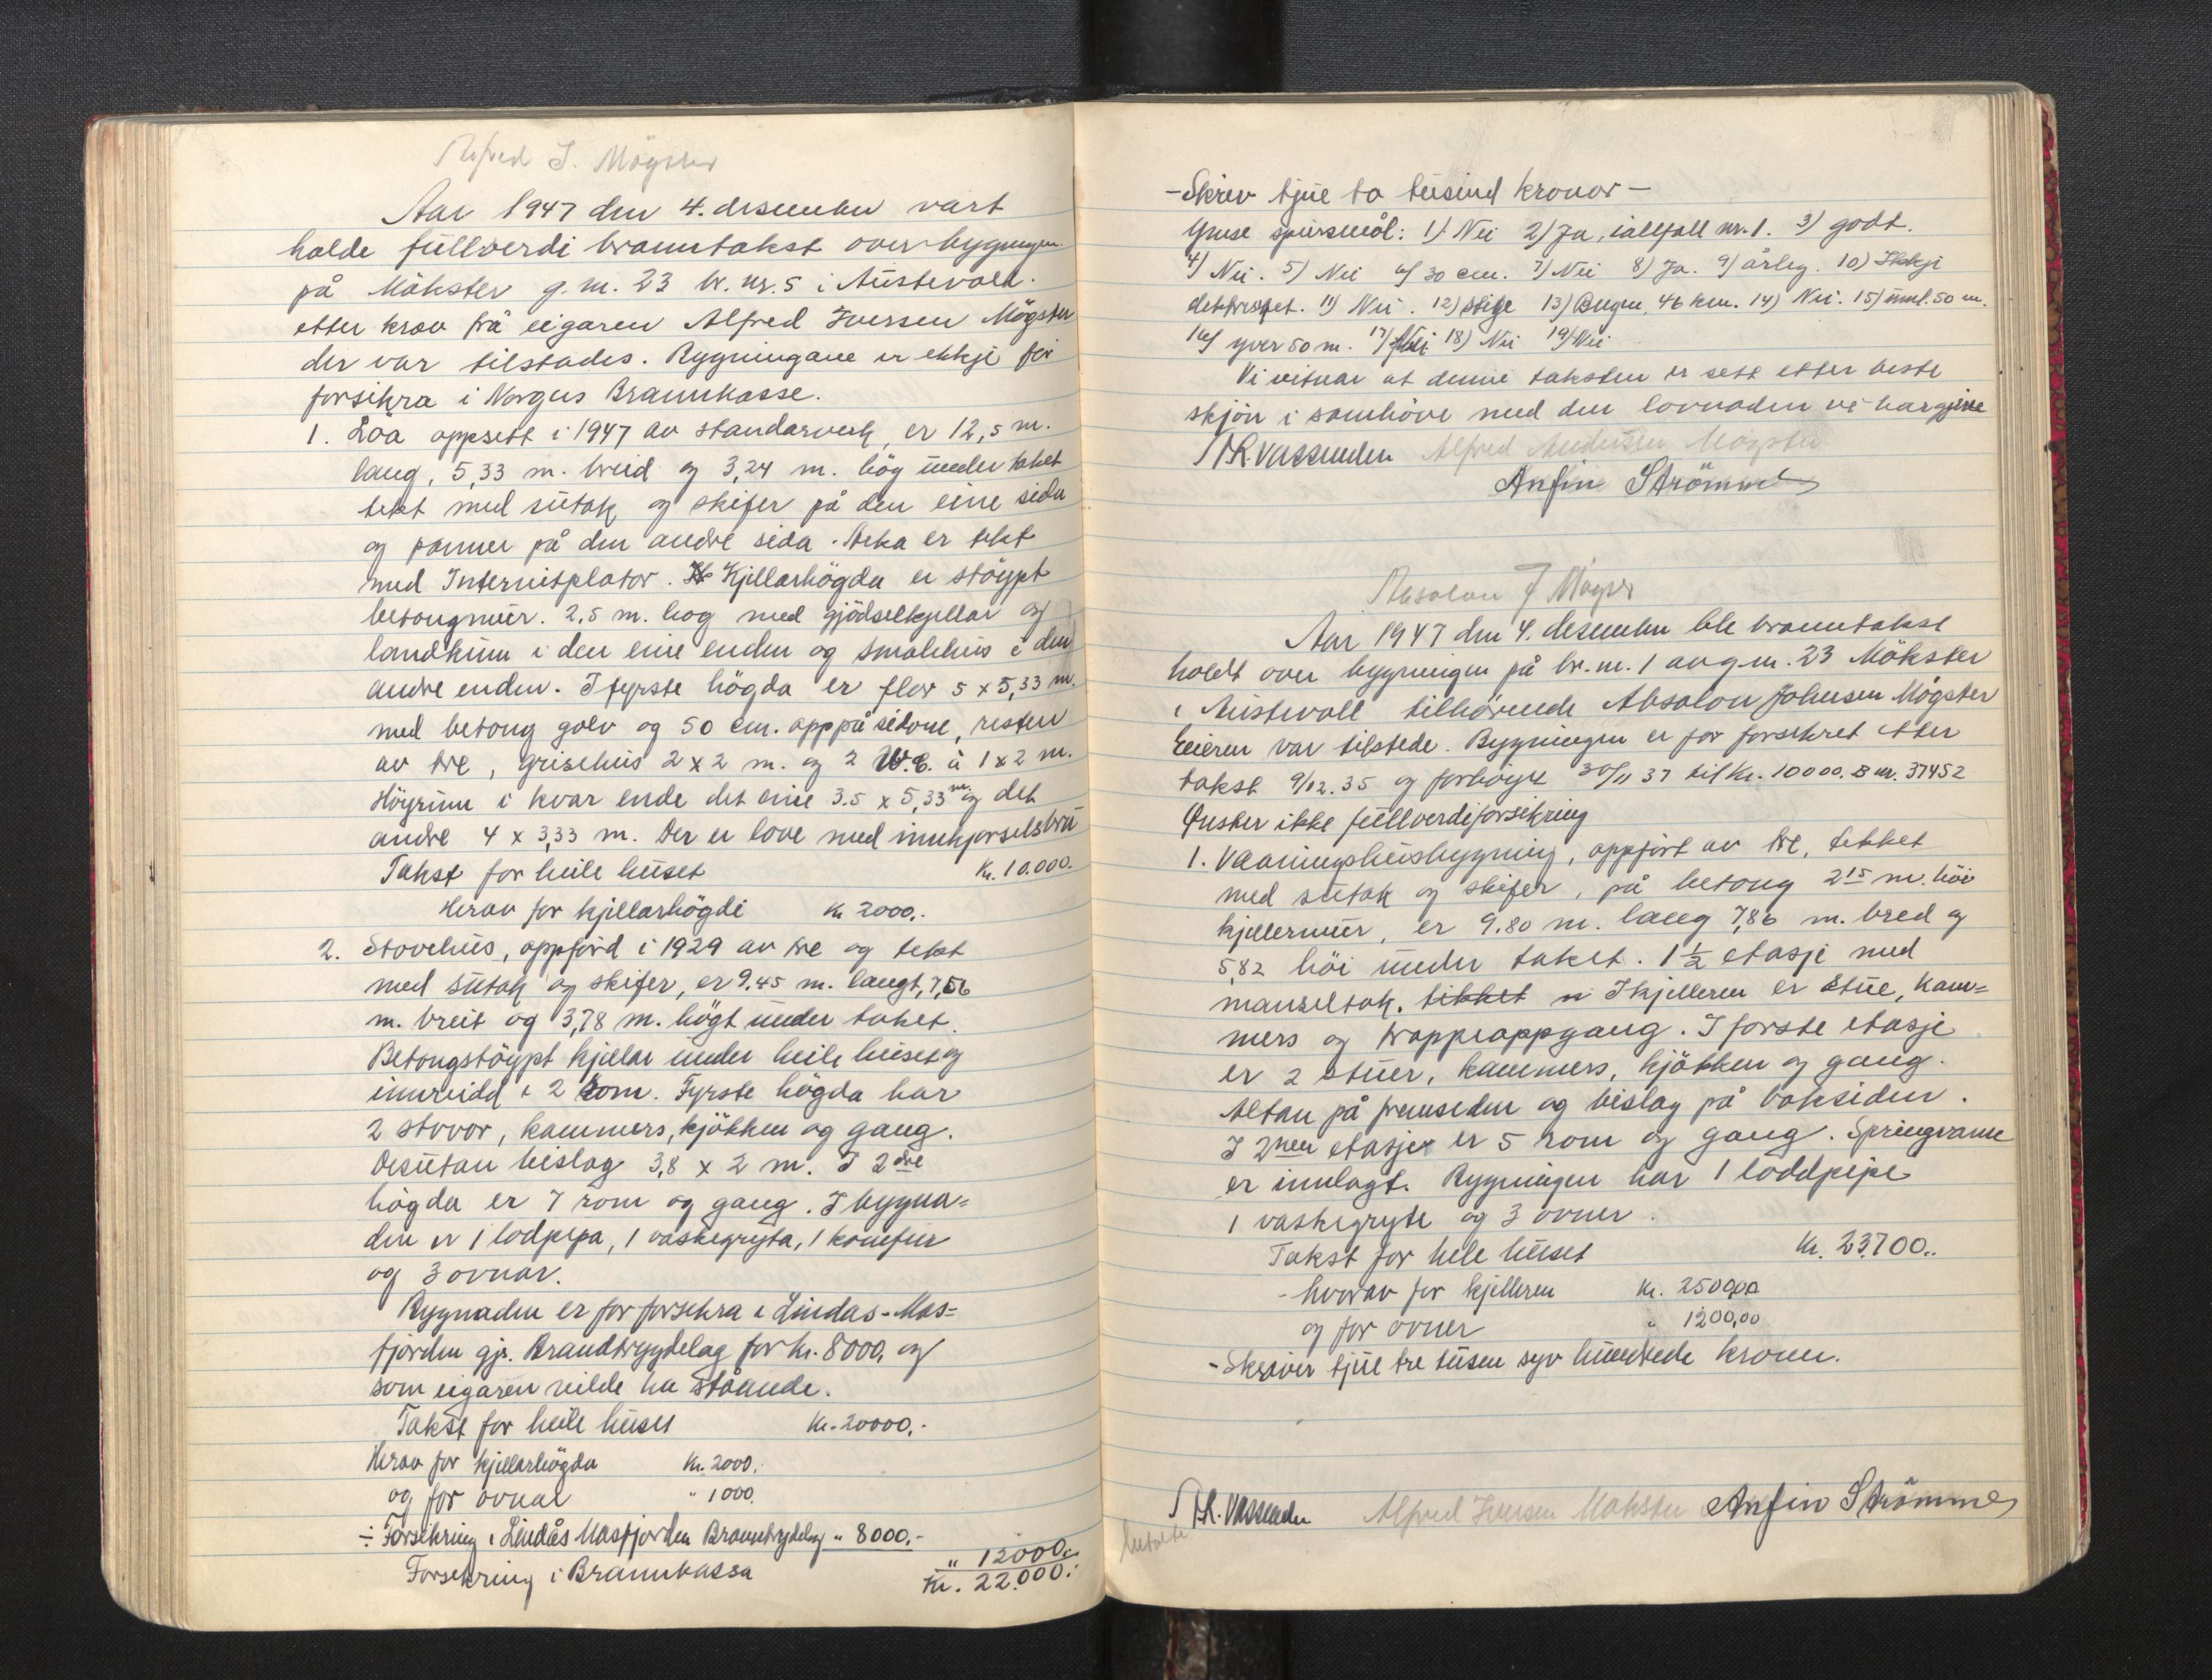 Alfred I. Mögster
Aar 1947 den 4. desember vart
halde fullverdi branntakst over bygningen
på Mökster g.nr. 23 br. nr. 5 i Austevoll.
etter krav frå eigaren Alfred Iversen Mögster
der var tilstades. Bygningane er ekkje för
forsikra i Norges Brannkasse.
1. Löa oppsett i 1947 av standarverk, er 12,5 m.
lang, 5,33 m. breid og 3,24 m. hög under taket
tekt med sutak og skifer på den eine sida
og panner på den andre sida. Arka er tekt
med Internitplator. Kjellarhögda er støypt
betongmur. 2,5 m. hög med gjödselkjellar og
landkum i den eine enden og smalehus i den
andre enden. I fyrste högda er flor 5 x 5,33 m.
med betong golv og 50 cm. opp på sidone, resten
av tre, grisehus 2 x 2 m. og 2 W.C. à 1 x 2 m.
Höyrum i kvar ende det eine 3.5 x 5,33 m og det
andre 4 x 3,33 m. Der er love med innkjørselsbru
Takst for heile huset Kr. 10.000.
Herav for kjellarhögdi Kr 2000,-
2. Stovehus, oppførd i 1929 av tre og tekt
med sutak og skifer, er 9.45 m. langt, 7,56
m. breit og 3,78 m. högt under taket.
Betongstöypt kjellar under heile huset og
innreidd i 2 rom. Fyrste högda har
2 stovor, kammers, kjökken og gang.
Desutan bislag 3,8 x 2 m. I 2dre
högda er 7 rom og gang. I bygna=
den er 1 lodpipa, 1 vaskegryta, 1 komfur
og 3 ovnar.
Bygnaden er før forsikra i Lindås-Mas=
fjorden gjs. Brandtrygdelag for kr. 8000, og
som eigaren vilde ha ståande.
Takst for heile huset Kr. 20000,-
Herav for kjellarhögda Kr. 2000,-
og for ovnar " 1000.
÷ Forsikring i Lindås Masfjorden Branntrygdelag " 8000.-
" 12000,-
Forsikring i Brannkassa Kr. 22.000.-
- Skriv tjue to tusind kronor -
Ymse spursmål: 1) Nei 2) Ja, iallfall nr. 1. 3) godt.
4) Nei. 5) Nei 6) 30 cm. 7) Nei 8) Ja. 9) årleg. 10) Ikkje
11) Nei. 12) stige 13) Bergen, 46 km. 14) Nei. 15) innl. 50 m.
16) yver 50 m. 17) Nei 18) Nei 19) Nei
Vi vitnar at denne taksten er sett etter beste
skjön i samhöve med den lovnaden vi har gjeve
R. Vassenden Alfred Andersen Mögster
Anfin Strömme
Absalon J Mögster
Aar 1947 den 4. desember ble branntakst
holdt over bygningen på br. nr. 1 av g.nr. 23 Mökster
i Austevoll tilhørende Absalon Johnsen Mögster
Eieren var tilstede. Bygningen er før forsikret etter
takst 9/12.35 og forhöyet 30/11 37 til kr. 10000. B nr. 37452
Ønsker ikke fullverdiforsikring
1. Vaaningshusbygning, oppført av tre, tekket
med sutak og skifer, på betong 2 15 m. höi
kjellermur, er 9.80 m. lang 7,86 m. bred og
5,82 höi under taket. 1 1/2 etasje med
mansaltak. tekket I kjelleren er stue, kam=
mers og trappeoppgang. I første etasje
er 2 stuer, kammers, kjökken og gang.
Altan på fremsiden og bislag på baksiden.
I 2nen etasje er 5 rom og gang. Springvann
er innlagt. Bygningen har 1 loddpipe
1 vaskegryte og 3 ovner.
Takst for hele huset Kr. 23.700..
- hvorav for kjelleren Kr. 2500,00
og for ovner " 1200,00
- Skriver tjue tre tusen syv hundrede kroner.
R. Vassenden Alfred Iversen Mökster Anfin Strömme
betalt